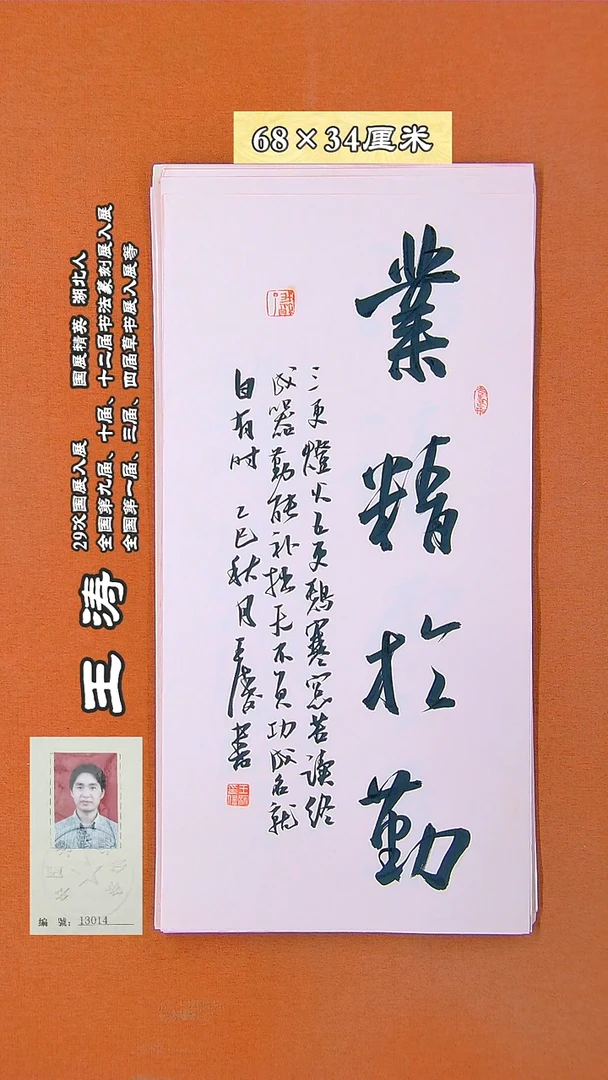 68×34厘米
業精於勤
三更燈火五更鷄寒窓苦讀終
成器勤能补拙天不負功成名就
自有时 乙巳秋月王濤書
29次国展入展 国展精英 湖北人
全国第九届、十届、十二届书法篆刻展入展
全国第一届、三届、四届草书展入展等
王涛
编 號: 13014